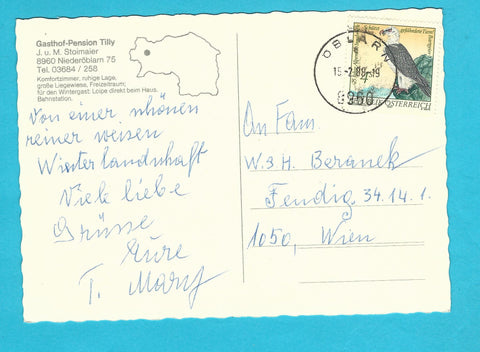 Gasthof-Pension Tilly
J. u. M. Stoimaier
8960 Niederöblarn 75
Tel. 03684 / 258
Komfortzimmer, ruhige Lage,
große Liegewiese, Freizeitraum;
für den Wintergast: Loipe direkt beim Haus.
Bahnstation.
Von einer schönen
reiner weisen
Winterlandschaft
Viele liebe
Grüsse
Eure
T. Mary
ÖBLARN
15.-2.88-19
8960
REPUBLIK ÖSTERREICH
An Fam.
W. 3 H. Beranek
Fendig. 34. 14. 1.
1050, Wien